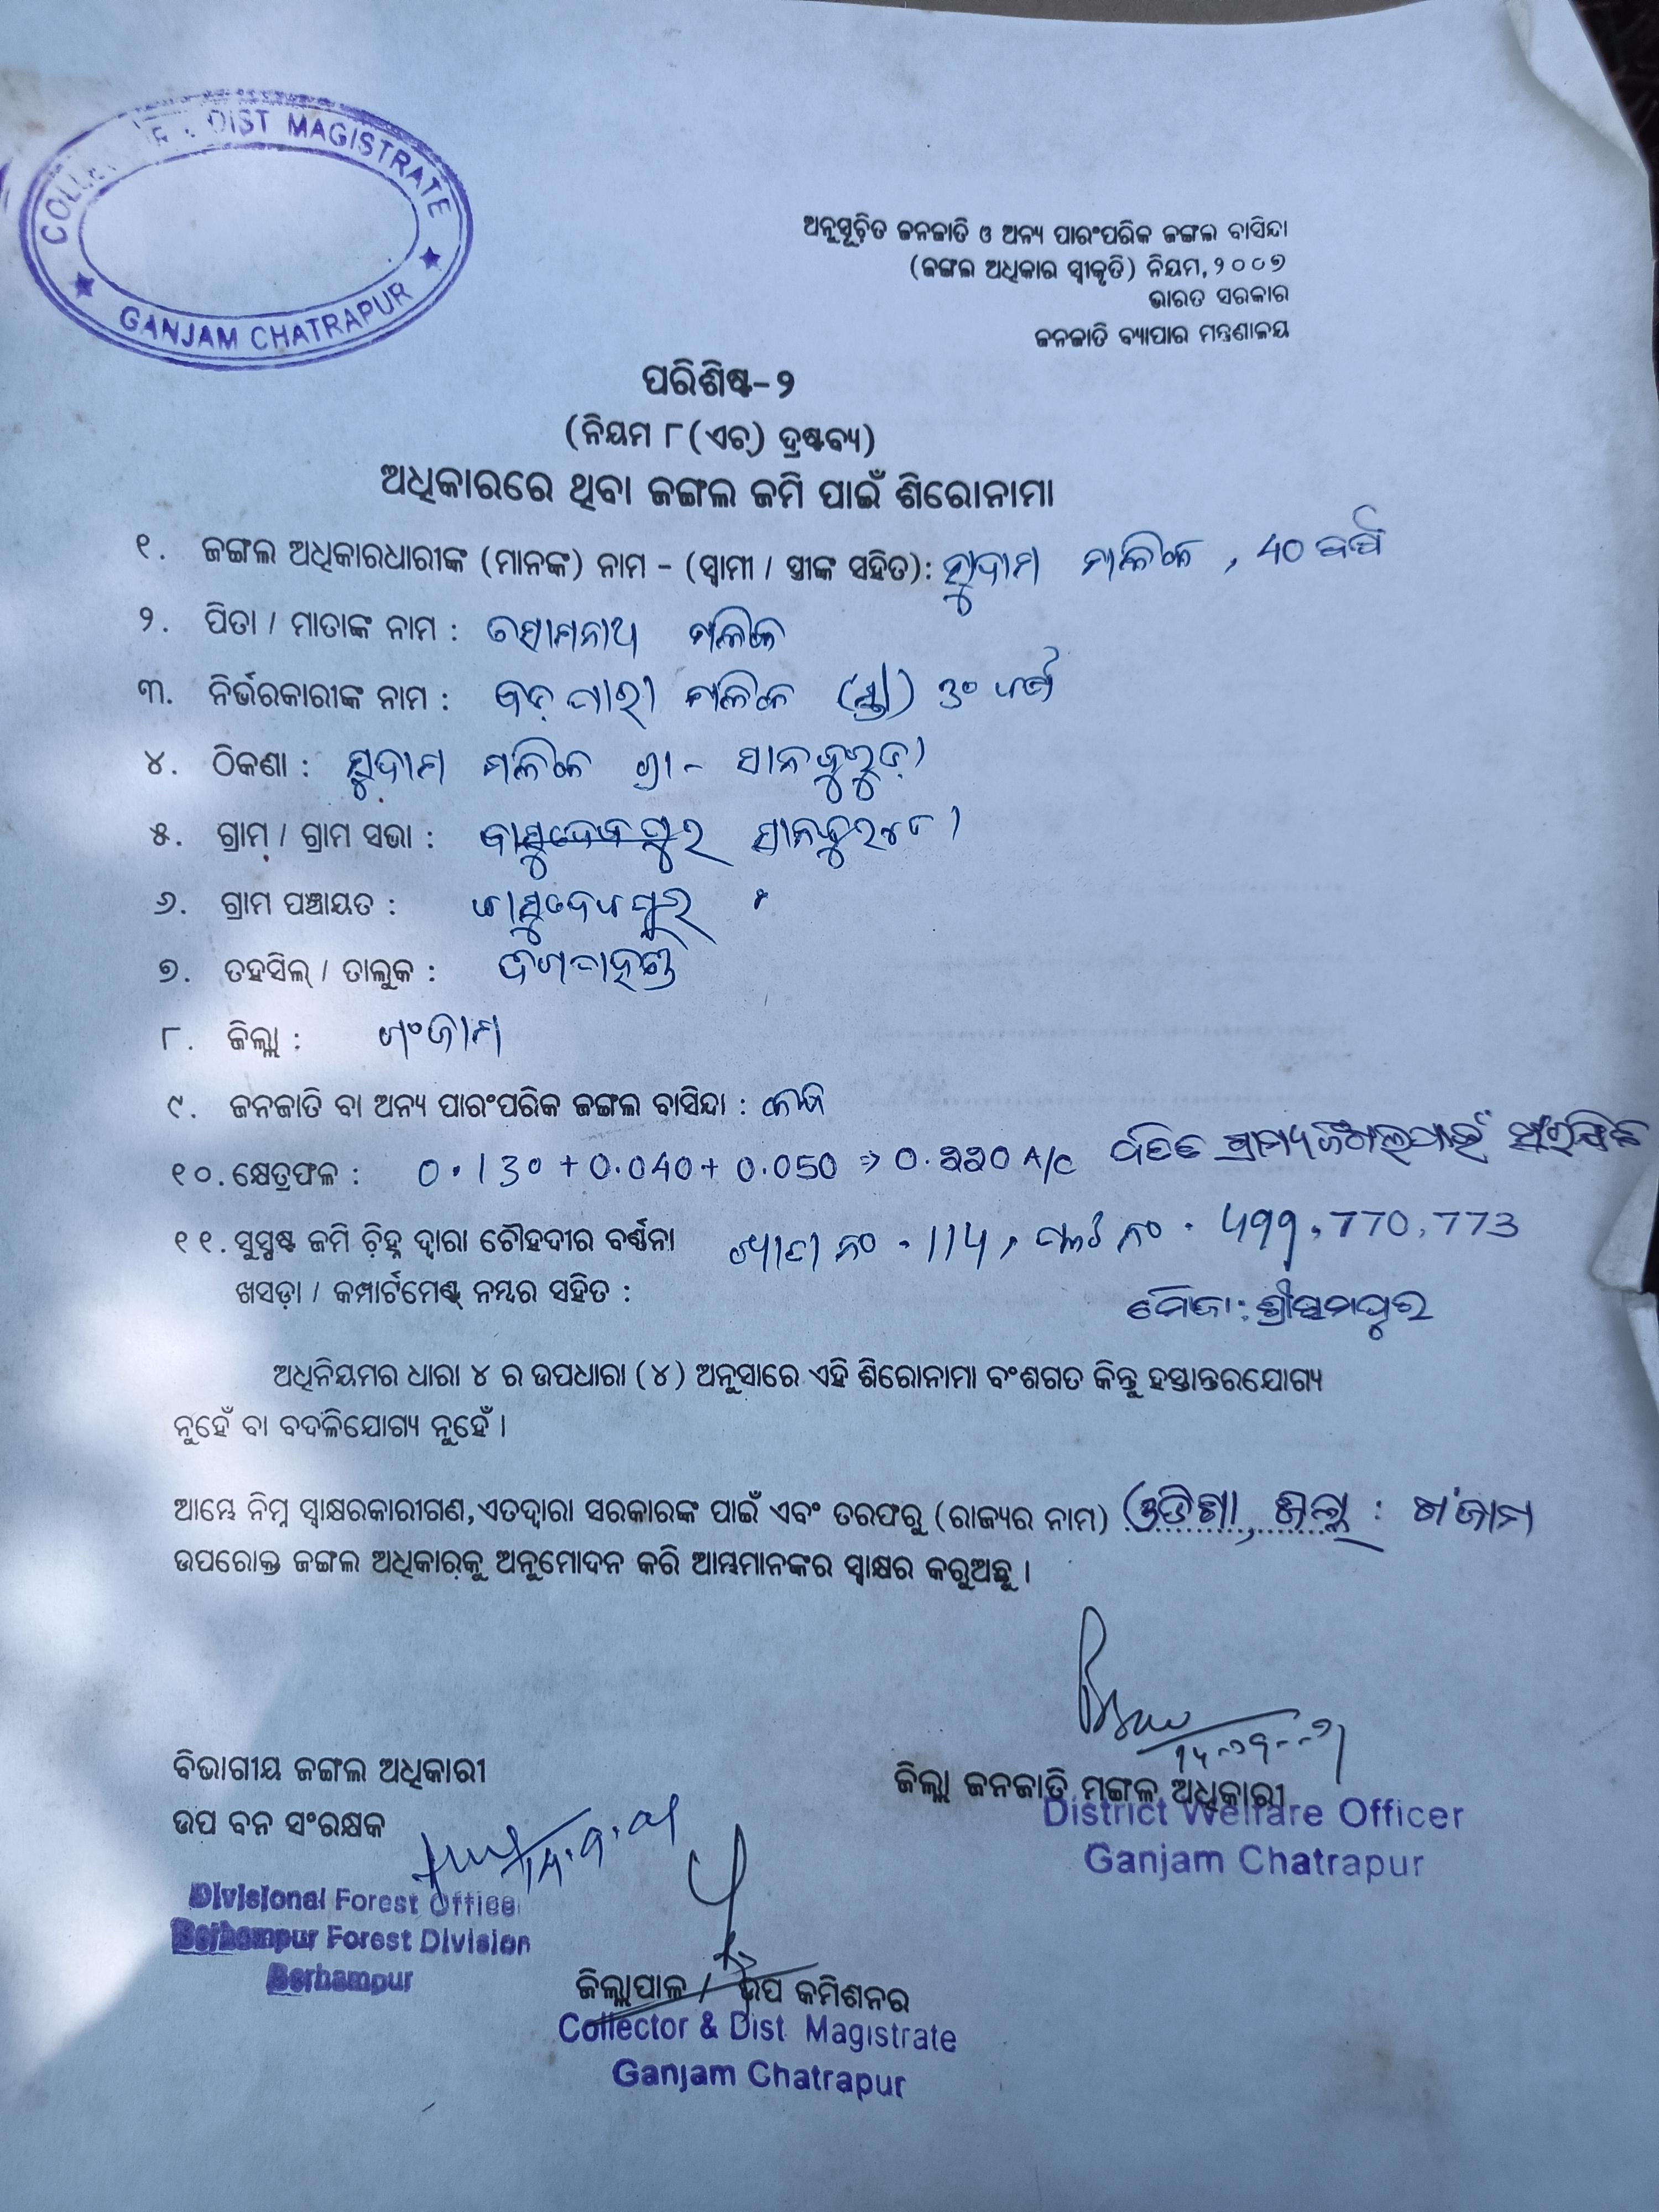 COLLECTOR & DIST MAGISTRATE
GANJAM CHATRAPUR
ଅନୁସୂଚିତ ଜନଜାତି ଓ ଅନ୍ୟ ପାରଂପରିକ ଜଙ୍ଗଲ ବାସିନ୍ଦା
(ଜଙ୍ଗଲ ଅଧିକାର ସ୍ୱୀକୃତି) ନିୟମ, ୨୦୦୭
ଭାରତ ସରକାର
ଜନଜାତି ବ୍ୟାପାର ମନ୍ତ୍ରଣାଳୟ
ପରିଶିଷ୍ଟ-୨
(ନିୟମ ୮(ଏଚ୍) ଦ୍ରଷ୍ଟବ୍ୟ)
ଅଧିକାରରେ ଥିବା ଜଙ୍ଗଲ ଜମି ପାଇଁ ଶିରୋନାମା
୧. ଜଙ୍ଗଲ ଅଧିକାରଧାରୀଙ୍କ (ମାନଙ୍କ) ନାମ - (ସ୍ୱାମୀ / ସ୍ତ୍ରୀଙ୍କ ସହିତ): ସୁଦାମ ମଲିକ, 40 ବର୍ଷ
୨. ପିତା / ମାତାଙ୍କ ନାମ : ସୋମନାଥ ମଲିକ
୩. ନିର୍ଭରକାରୀଙ୍କ ନାମ : ମଲିକ (ସ୍ତ୍ରୀ) ୩୦ ବର୍ଷ
୪. ଠିକଣା : ସୁଦାମ ମଲିକ ଗ୍ରା-
୫. ଗ୍ରାମ / ଗ୍ରାମ ସଭା : ବାସୁଦେବପୁର
୬. ଗ୍ରାମ ପଞ୍ଚାୟତ : ବାସୁଦେବପୁର
୭. ତହସିଲ୍ / ତାଲୁକ : ଦିଗପହଣ୍ଡି
୮. ଜିଲ୍ଲା : ଗଂଜାମ
୯. ଜନଜାତି ବା ଅନ୍ୟ ପାରଂପରିକ ଜଙ୍ଗଲ ବାସିନ୍ଦା :
୧୦. କ୍ଷେତ୍ରଫଳ : 0.130 + 0.040 + 0.050 ⇒ 0.220 A/c
୧୧. ସୁସ୍ପଷ୍ଟ ଜମି ଚିହ୍ନ ଦ୍ୱାରା ଚୌହଦୀର ବର୍ଣ୍ଣନା ଖାତା ନଂ . 114, ପ୍ଲଟ ନଂ . 799, 770, 773
ଖସଡ଼ା / କମ୍ପାର୍ଟମେଣ୍ଟ୍ ନମ୍ବର ସହିତ : ମୌଜା:
ଅଧିନିୟମର ଧାରା ୪ ର ଉପଧାରା (୪) ଅନୁସାରେ ଏହି ଶିରୋନାମା ବଂଶଗତ କିନ୍ତୁ ହସ୍ତାନ୍ତରଯୋଗ୍ୟ
ନୁହେଁ ବା ବଦଳିଯୋଗ୍ୟ ନୁହେଁ ।
ଆମ୍ଭେ ନିମ୍ନ ସ୍ୱାକ୍ଷରକାରୀଗଣ, ଏତଦ୍ୱାରା ସରକାରଙ୍କ ପାଇଁ ଏବଂ ତରଫରୁ (ରାଜ୍ୟର ନାମ) ଓଡିଶା, ଜିଲ୍ଲା : ଗଂଜାମ
ଉପରୋକ୍ତ ଜଙ୍ଗଲ ଅଧିକାରକୁ ଅନୁମୋଦନ କରି ଆମ୍ଭମାନଙ୍କର ସ୍ୱାକ୍ଷର କରୁଅଛୁ ।
ବିଭାଗୀୟ ଜଙ୍ଗଲ ଅଧିକାରୀ
ଉପ ବନ ସଂରକ୍ଷକ
Divisional Forest Office
Berhampur Forest Division
Berhampur
ଜିଲ୍ଲା ଜନଜାତି ମଙ୍ଗଳ ଅଧିକାରୀ
District Welfare Officer
Ganjam Chatrapur
ଜିଲ୍ଲାପାଳ / ଉପ କମିଶନର
Collector & Dist Magistrate
Ganjam Chatrapur